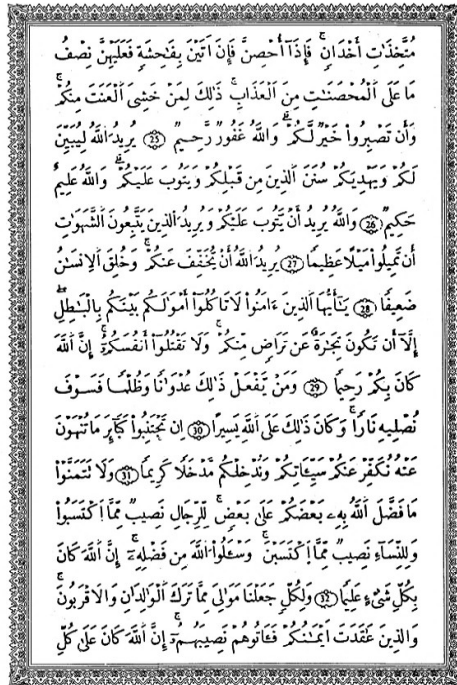 مُتَّخِذَٰتِ أَخْدَانٍ فَإِذَآ أُحْصِنَّ فَإِنَ اَتَيْنَ بِفَٰحِشَةٍ فَعَلَيْهِنَّ نِصْفُ
مَا عَلَى اَلْمُحْصَنَٰتِ مِنَ اَلْعَذَابِ ذَٰلِكَ لِمَنْ خَشِىَ اَلْعَنَتَ مِنكُمْ
وَأَن تَصْبِرُواْ خَيْرٌ لَّكُمْ وَاللَّهُ غَفُورٌ رَّحِيمٌ 25 يُرِيدُ اللَّهُ لِيُبَيِّنَ
لَكُمْ وَيَهْدِيَكُمْ سُنَنَ اَلذِينَ مِن قَبْلِكُمْ وَيَتُوبَ عَلَيْكُمْ وَاللَّهُ عَلِيمٌ
حَكِيمٌ 26 وَاللَّهُ يُرِيدُ أَنْ يَتُوبَ عَلَيْكُمْ وَيُرِيدُ اَلذِينَ يَتَّبِعُونَ اَلشَّهَوَٰتِ
أَن تَمِيلُواْ مَيْلًا عَظِيمًا 27 يُرِيدُ اللَّهُ أَنْ يُخَفِّفَ عَنكُمْ وَخُلِقَ اَلِانسَٰنُ
ضَعِيفًا 28 يَٰأَيُّهَا اَلذِينَ ءَامَنُواْ لَا تَاكُلُواْ أَمْوَٰلَكُم بَيْنَكُم بِالْبَٰطِلِ
إِلَّآ أَن تَكُونَ تِجَٰرَةٌ عَن تَرَاضٍ مِّنكُمْ وَلَا تَقْتُلُوٓاْ أَنفُسَكُمْ إِنَّ اَللَّهَ
كَانَ بِكُمْ رَحِيمًا 29 وَمَنْ يَّفْعَلْ ذَٰلِكَ عُدْوَٰنًا وَظُلْمًا فَسَوْفَ
نُصْلِيهِ نَارًا وَكَانَ ذَٰلِكَ عَلَى اَللَّهِ يَسِيرًا 30 اِن تَجْتَنِبُواْ كَبَآئِرَ مَا تُنْهَوْنَ
عَنْهُ نُكَفِّرْ عَنكُمْ سَيِّـَٔاتِكُمْ وَنُدْخِلْكُم مَّدْخَلًا كَرِيمًا 31 وَلَا تَتَمَنَّوْاْ
مَا فَضَّلَ اَللَّهُ بِهِۦ بَعْضَكُمْ عَلَىٰ بَعْضٍ لِّلرِّجَالِ نَصِيبٌ مِّمَّا اَكْتَسَبُواْ
وَلِلنِّسَآءِ نَصِيبٌ مِّمَّا اَكْتَسَبْنَ وَسْـَٔلُواْ اَللَّهَ مِن فَضْلِهِۦٓ إِنَّ اَللَّهَ كَانَ
بِكُلِّ شَىْءٍ عَلِيمًا 32 وَلِكُلٍّ جَعَلْنَا مَوَٰلِىَ مِمَّا تَرَكَ اَلْوَٰلِدَانِ وَالَاقْرَبُونَ
وَالذِينَ عَٰقَدَتَ اَيْمَٰنُكُمْ فَـَٔاتُوهُمْ نَصِيبَهُمُۥٓ إِنَّ اَللَّهَ كَانَ عَلَىٰ كُلِّ